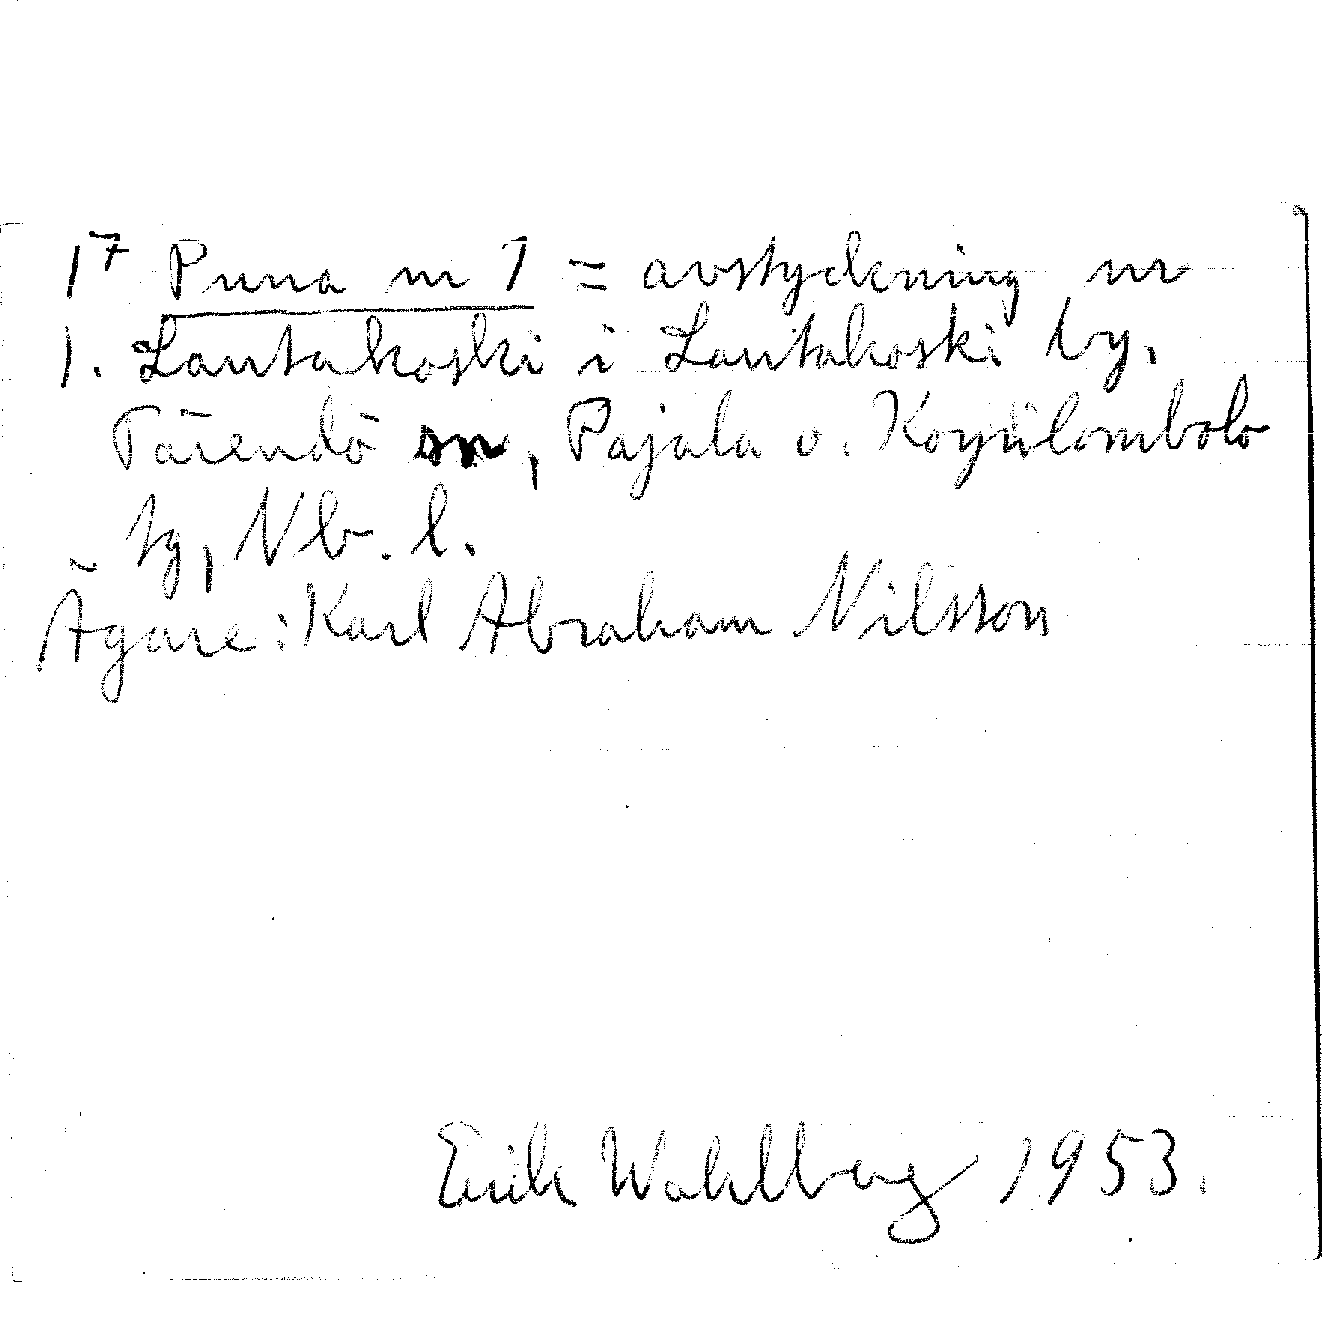 1⁷ Puna nr 1 = avstyckning nr
1. Lautakoski i Lautakoski by.
Tärendö sn, Pajala o. Korpilombolo
tg, Nb. l.
Ägare: Karl Abraham Nilsson
Erik Wahlberg 1953.